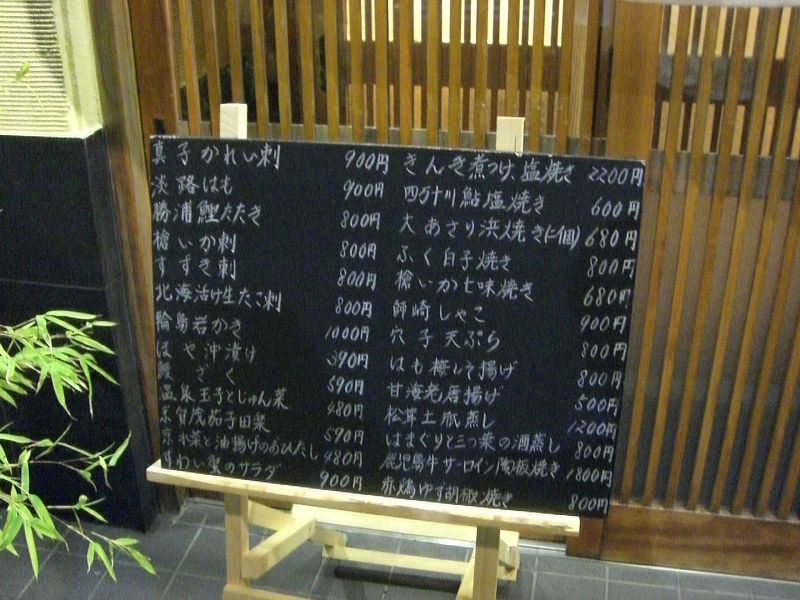 真子かれい刺 900円
淡路はも 900円
勝浦鰹たたき 800円
槍いか刺 800円
すずき刺 800円
北海活け生たこ刺 800円
輪島岩かき 1000円
ほや沖漬け 390円
鰻ざく 590円
温泉玉子とじゅん菜 480円
京賀茂茄子田楽 590円
京水菜と油揚げのおひたし 480円
ずわい蟹のサラダ 900円
きんき煮つけ、塩焼き 2200円
四万十川鮎塩焼き 600円
大あさり浜焼き(二個) 680円
ふく白子焼き 800円
槍いか七味焼き 680円
師崎しゃこ 900円
穴子天ぷら 800円
はも梅しそ揚げ 800円
甘海老唐揚げ 500円
松茸土瓶蒸し 1200円
はまぐりと三つ葉の酒蒸し 800円
鹿児島牛サーロイン陶板焼き 1800円
赤鶏ゆず胡椒焼き 800円